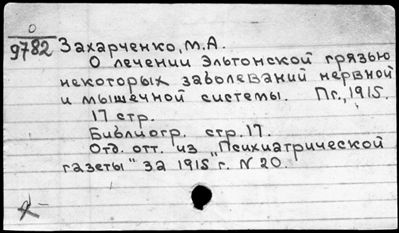 О
9782 Захарченко, М.А.
О лечении Эльтонской грязью
некоторых заболеваний нервной
и мышечной системы. Пг., 1915.
17 стр.
Библиогр. стр. 17.
Отд. отт. из „Психиатрической
газеты" за 1915 г. N 20.